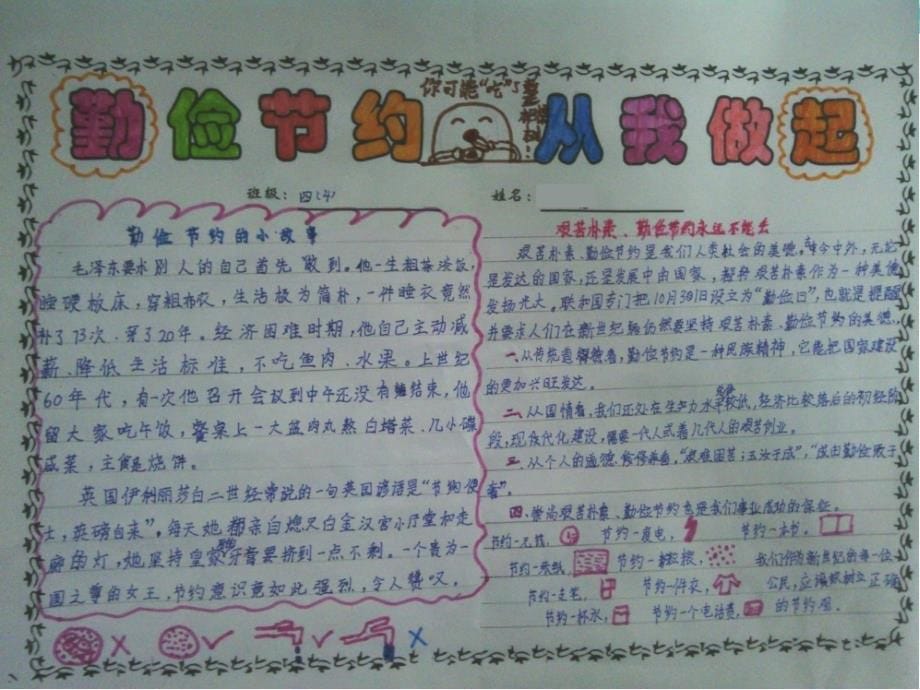 勤俭节约 从我做起
你可能“吃”了
班级：四(4)
姓名：
勤俭节约的小故事
毛泽东要求别人的自己首先做到。他一生粗茶淡饭，
睡硬板床，穿粗布衣，生活极为简朴，一件睡衣竟然
补了73次、穿了20年。经济困难时期，他自己主动减
薪、降低生活标准，不吃鱼肉、水果。上世纪
60年代，有一次他召开会议到中午还没有结束，他
留大家吃午饭，餐桌上一大盆肉丸熬白塔菜、几小碟
咸菜，主食是烧饼。
英国伊丽莎白二世经常说的一句英国谚语是“节约便
士，英磅自来”。每天她都亲自熄灭白金汉宫小厅堂和走
廊的灯，她坚持皇家牙膏要挤到一点不剩。一个贵为一
国之尊的女王，节约意识竟如此强烈，令人赞叹。
艰苦朴素、勤俭节约永远不能丢
艰苦朴素、勤俭节约是我们人类社会的美德。古今中外，无论
是发达的国家，还是发展中国家，都将艰苦朴素作为一种美德
发扬光大。联和国专门把10月31日设立为“勤俭日”，也就是提醒
并要求人们在新世纪肠仍然要坚持艰苦朴素、勤俭节约的美德。
一、从传统道德看，勤俭节约是一种民族精神，它能把国家建设
的更加兴旺发达。
二、从国情看，我们还处在生产力水平较低，经济比较落后的初级阶
段，现代化建设，需要一代人或者几代人的艰苦创业。
三、从个人的道德、修修养看，“艰难困苦；玉汝于成”，“成由勤俭败于
奢”。
四、崇尚艰苦朴素、勤俭节约总是我们事业成功的保征。
节约一元钱， 节约一度电， 节约一本书，
节约一张纸， 节约一粒粮， 我们作为新世纪的每一位
节约一支笔， 节约一件衣， 公民，应该树立正确
节约一杯水， 节约一个电话费， 的节约观。